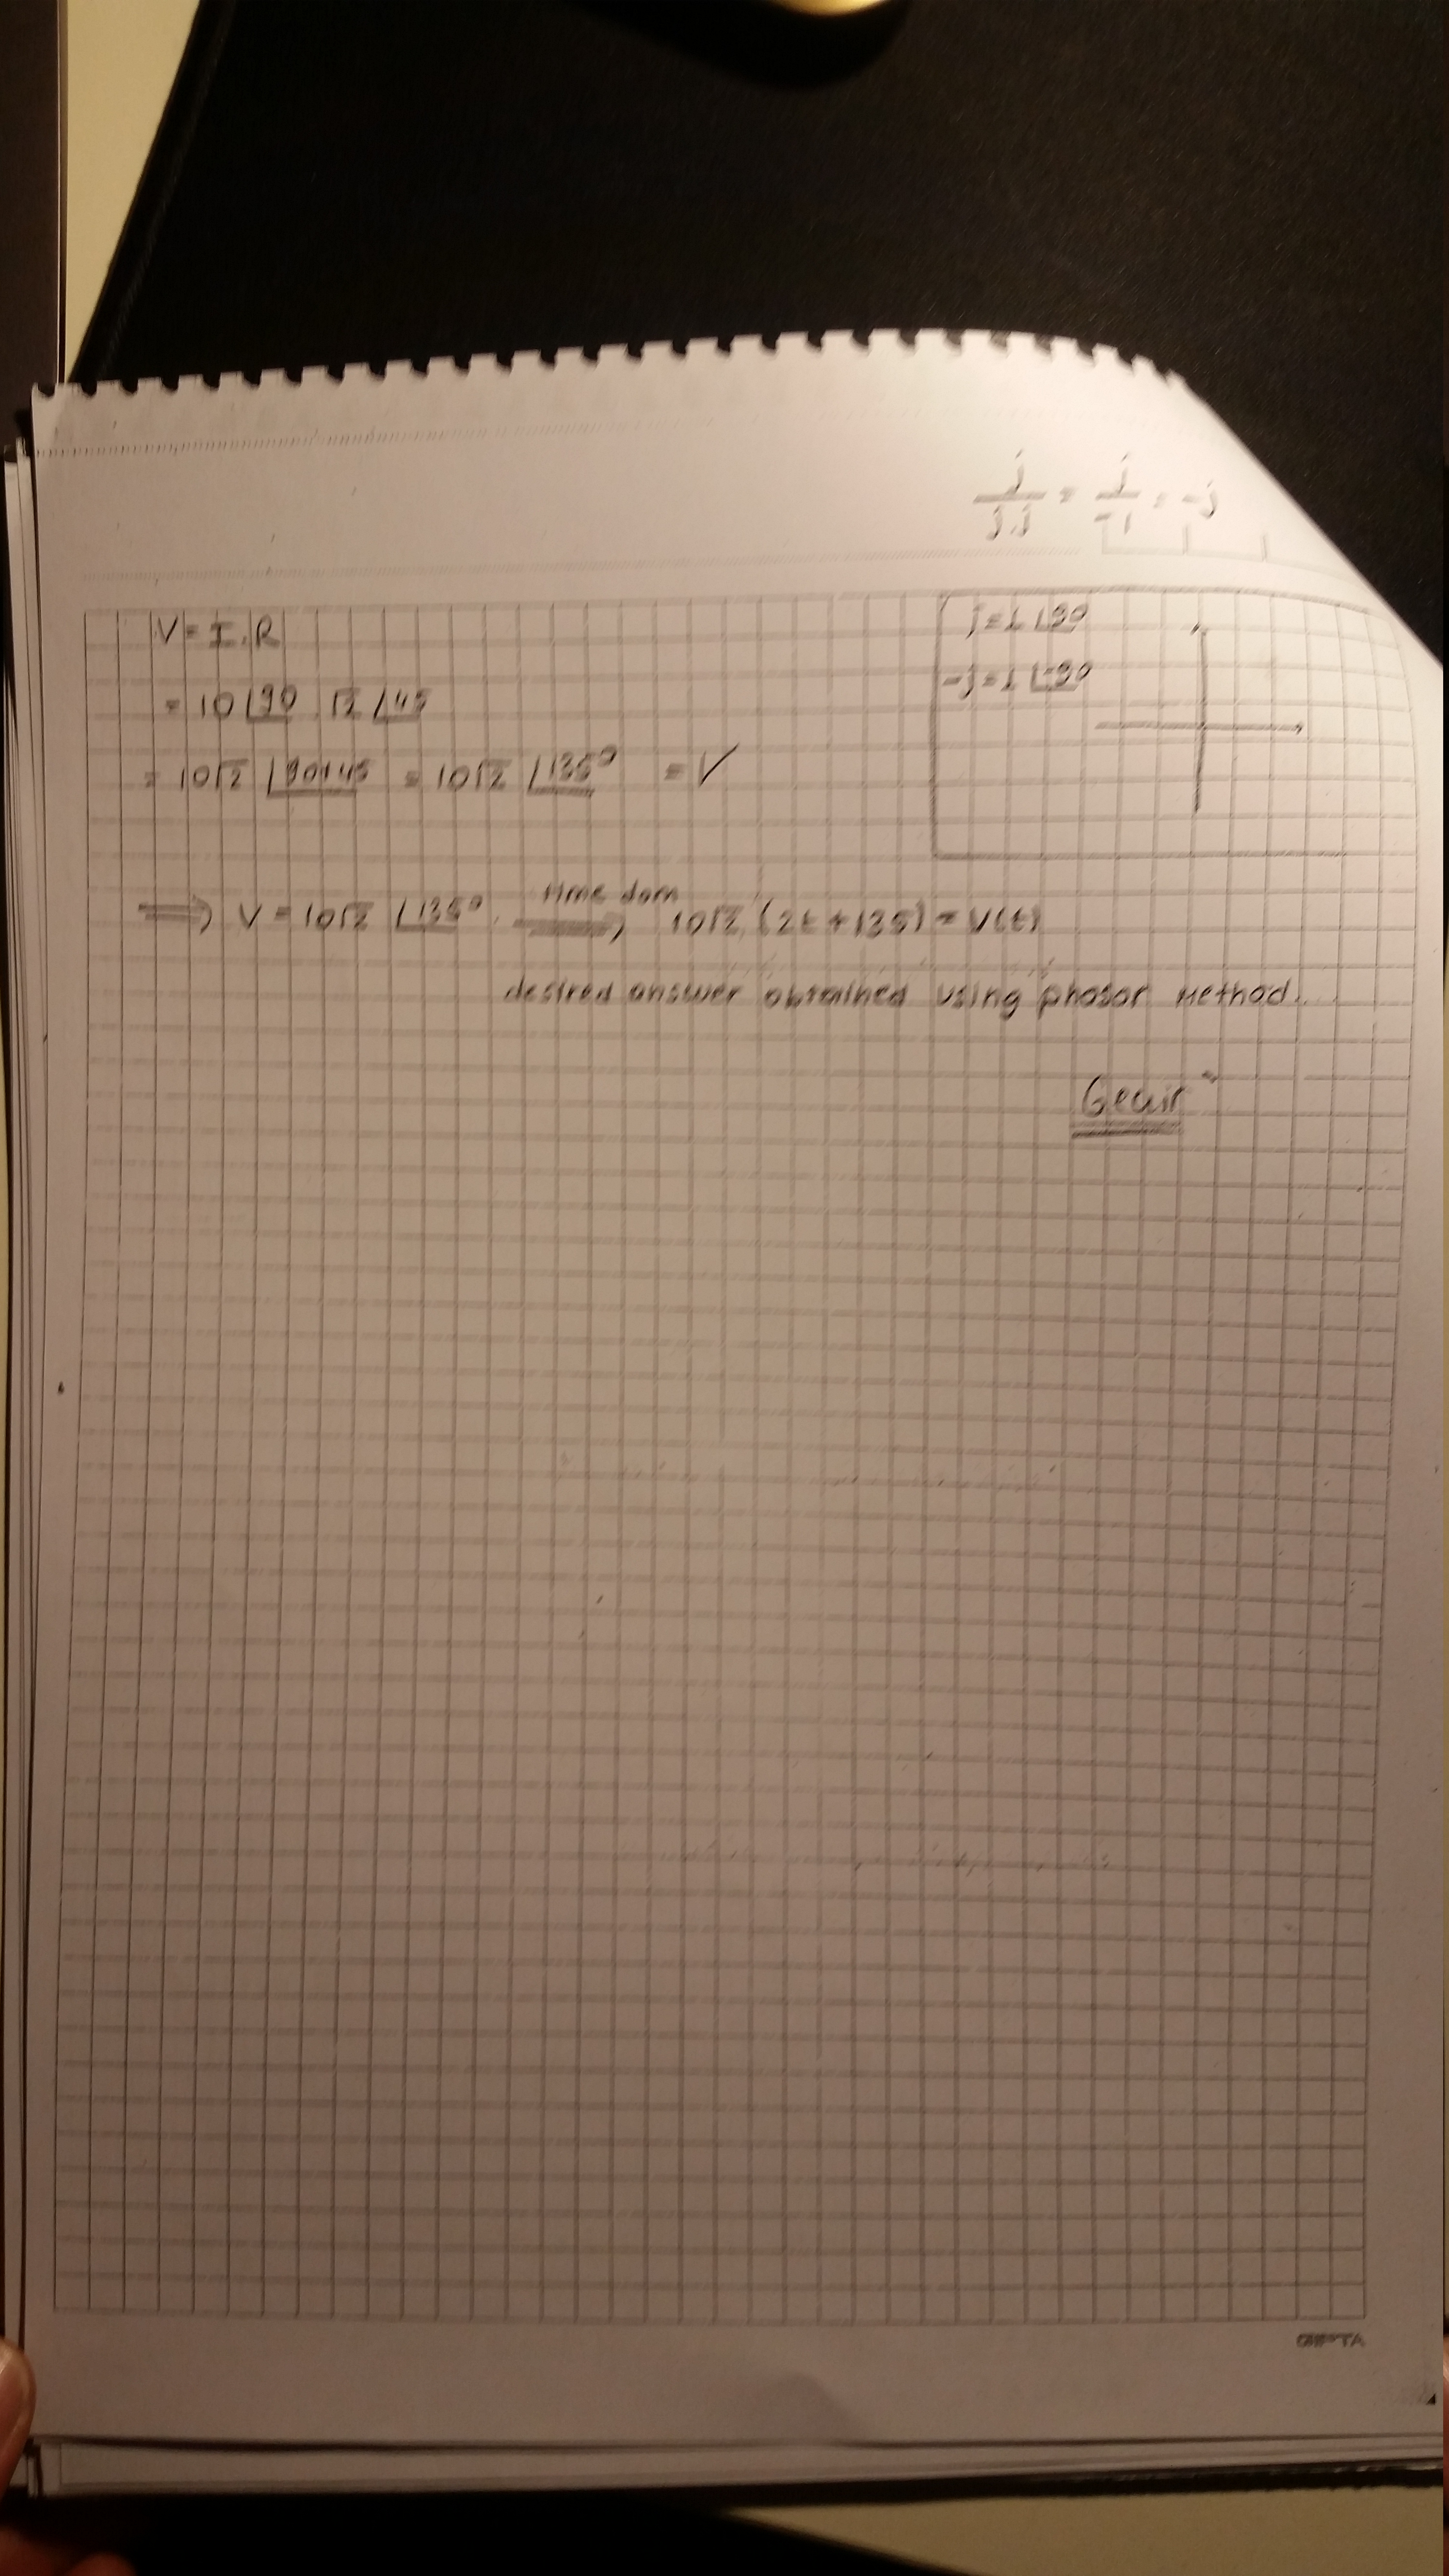 j/j.j = j/-1 = -j
V = I.R
j = 1∠90
-j = 1∠-90
= 10∠90 . √2∠45
= 10√2 ∠90+45 = 10√2 ∠135° = V
⟹ V = 10√2 ∠135° . time dom ⟹ 10√2 (2t + 135) = V(t)
desired answer obtained using phasor method.
GIPTA